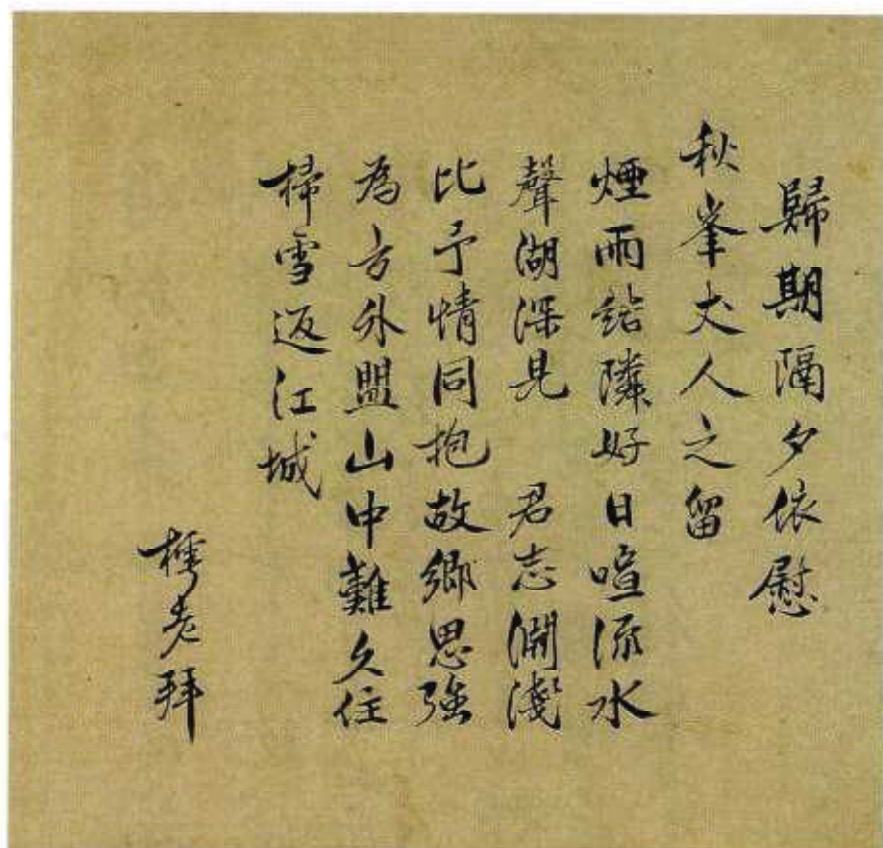 歸期隔夕依慰
秋峯丈人之留
煙雨結隣好日喧流水
聲湖深見 君志澗淺
比予情同抱故鄉思強
為方外盟山中難久住
掃雪返江城
樗老拜